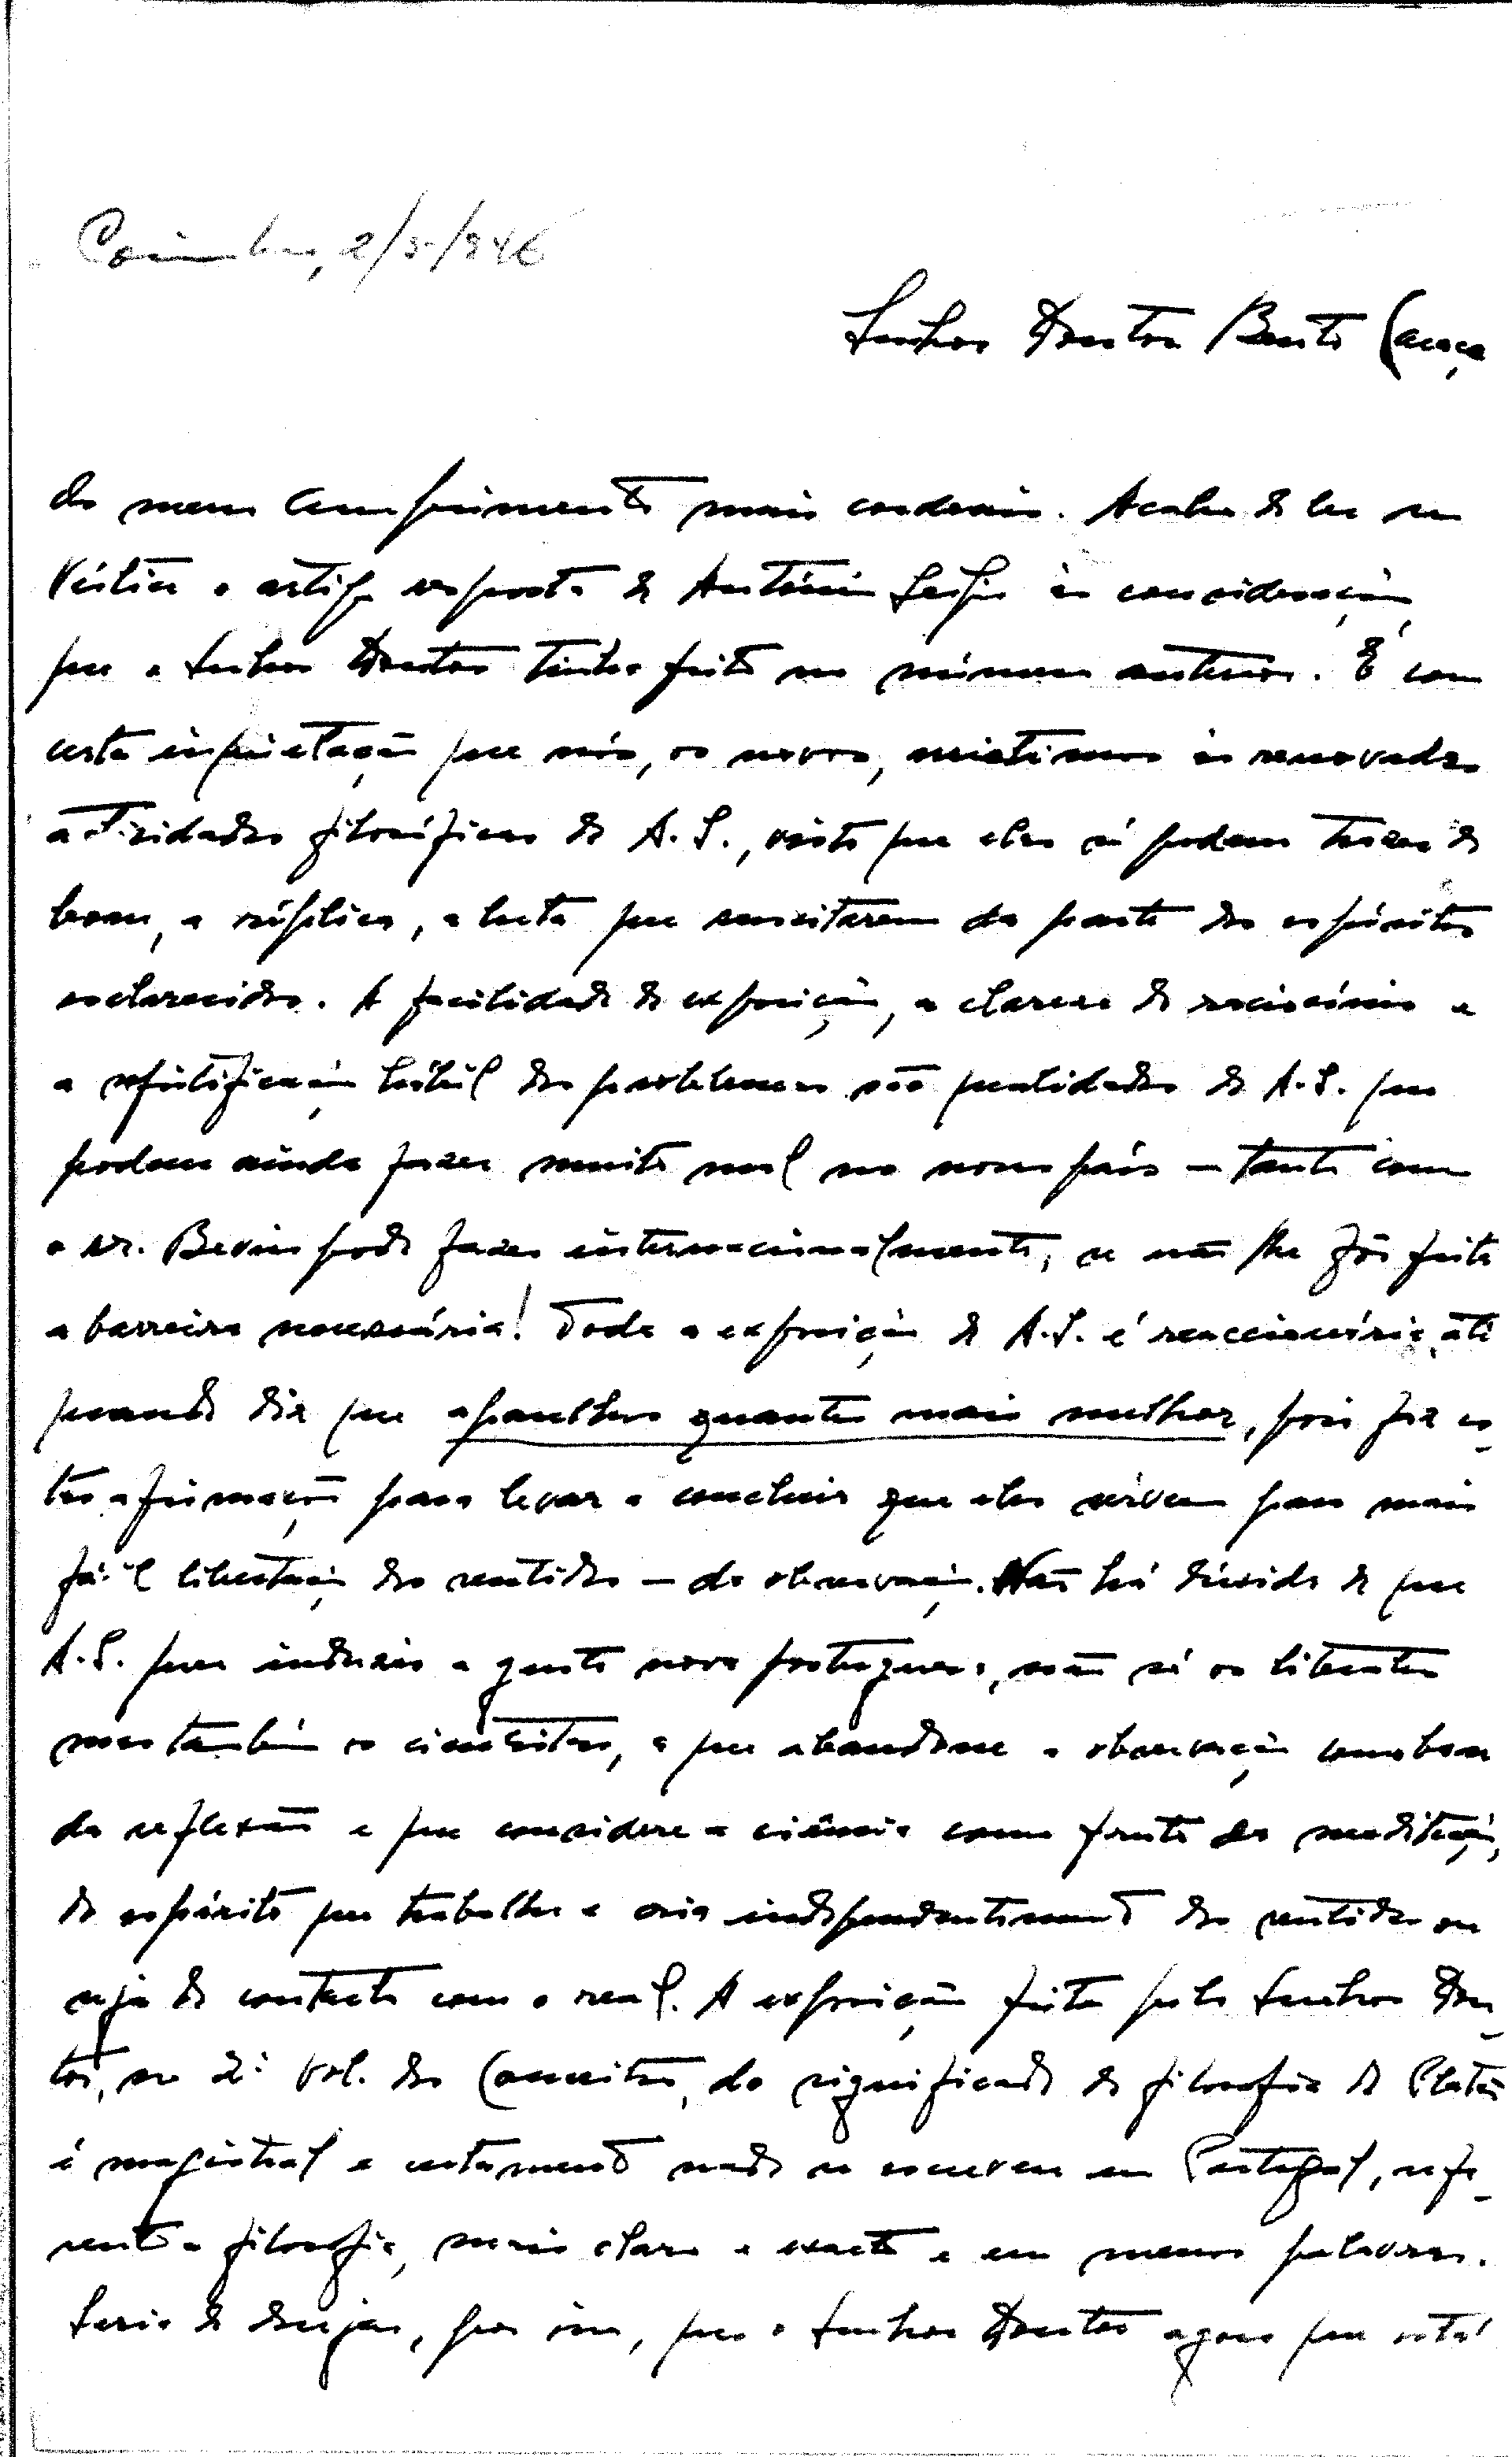 Coimbra, 2/5/946
Senhor Doutor Bento Caraça
Os meus cumprimentos mais cordeais. Acabo de ler na
Vértice o artigo resposta de António Sérgio às considerações
que o Senhor Doutor tinha feito no número anterior. É com
certa inquietação que nós, os novos, assistimos às renovadas
actividades filosóficas de A. S., visto que elas só podem trazer de
bom, a réplica, a luta que suscitarem da parte dos espíritos
esclarecidos. A facilidade de exposição, a clareza de raciocínio e
a hábil dos problemas são qualidades de A. S. que
podem ainda fazer muito mal no nosso país — tanto como
o sr. Bevin pode fazer internacionalmente, se não lhe fôr feita
a barreira necessária! Toda a exposição de A. S. é reaccionária, até
quando diz que aparelhos quantos mais melhor, pois faz es-
ta afirmação para levar a concluir que eles servem para mais
fácil libertação dos sentidos — da observação. Não há dúvida de que
A. S. quer induzir a gente nova portuguesa, não só os literatos
mas também os cientistas, a que abandone a observação como base
da reflexão e que considere a ciência como fruto da meditação,
do espírito que trabalha e cria independentemente dos sentidos ou
seja do contacto com o real. A exposição feita pelo Senhor Dou-
tor, no 2º vol. dos Conceitos, do significado da filosofia de Platão
é magistral e certamente nada se escreveu em Portugal, refe-
rente a filosofia, mais claro e exacto e em menos palavras.
Seria de desejar, por isso, que o Senhor Doutor agora que está